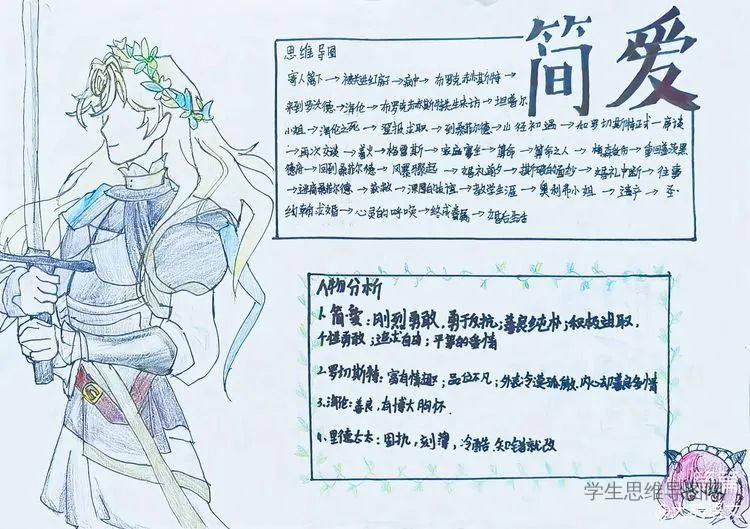 简爱
思维导图
寄人篱下→被关进红房子→病中→布罗克赫斯特→
来到罗沃德→海伦→布罗克赫斯特先生来访→坦普尔
小姐→海伦之死→登报求职→到桑菲尔德→山径初遇→和罗切斯特正式一席谈
→再次交谈→着火→格雷斯→家庭宴会→算命→算命之人→梅森→重回盖茨黑
德府→回到桑菲尔德→风云→婚礼前夕→撕破的面纱→婚礼中断→往事
→逃离桑菲尔德→获救→→教学生涯→奥利弗小姐→遗产→圣·
约翰求婚→心灵的呼唤→终成眷属→婚后生活
人物分析
1. 简爱：刚烈勇敢，勇于反抗；善良纯朴；积极进取，
坦率勇敢；追求自由；平等的爱情
2. 罗切斯特：富有情趣；品位不凡；外表冷漠孤傲，内心却善良多情
3. 海伦：善良，有博大胸怀．
4. 里德太太：固执，刻薄，冷酷，知错就改
学生思维导图